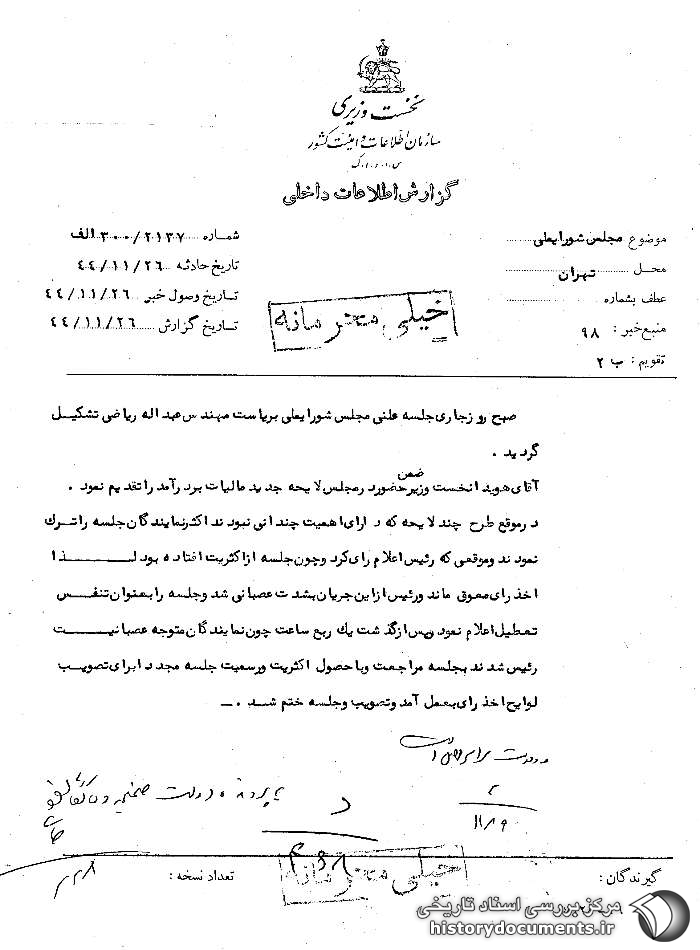 نخست وزیری
سازمان اطلاعات و امنیت کشور
س.ا.و.ا.ک
گزارش اطلاعات داخلی
موضوع مجلس شورایملی
محل تهران
عطف بشماره
منبع خبر : ۹۸
تقویم : ب ۲
شماره ۳۰۰/۲۱۳۷ الف
تاریخ حادثه ۴۴/۱۱/۲۶
تاریخ وصول خبر ۴۴/۱۱/۲۶
تاریخ گزارش ۴۴/۱۱/۲۶
خیلی محرمانه
صبح روز جاری جلسه علنی مجلس شورایملی بریاست مهندس عبداله ریاضی تشکیل
گردید .
آقای هویدا نخست وزیر ضمن حضور در مجلس لایحه جدید مالیات بر درآمد را تقدیم نمود .
در موقع طرح چند لایحه که دارای اهمیت چندانی نبودند اکثر نمایندگان جلسه را ترك
نمودند و موقعی که رئیس اعلام رای کرد و چون جلسه از اکثریت افتاده بود لذا
اخذ رای معوق ماند و رئیس از این جریان بشدت عصبانی شد و جلسه را بعنوان تنفس
تعطیل اعلام نمود و پس از گذشت یك ربع ساعت چون نمایندگان متوجه عصبانیت
رئیس شدند بجلسه مراجعت و با حصول اکثریت و رسمیت جلسه مجدد ابرای تصویب
لوایح اخذ رای بعمل آمد و تصویب و جلسه ختم شد . ــ
۱۱/۹
گیرندگان :
تعداد نسخه :
خیلی محرمانه
مرکز بررسی اسناد تاریخی
historydocuments.ir